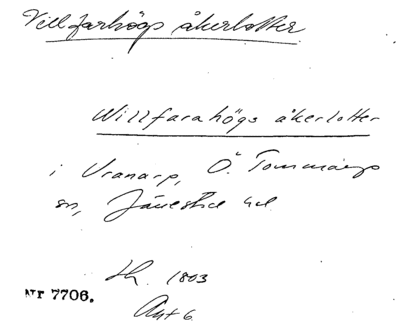 Villfarhögs åkerlotter
Willfarahögs åkerlotter
i Vranarp, Ö. Tommarps
sn, Järrestad hd
Lh. 1803
Akt 6
Nr 7706.